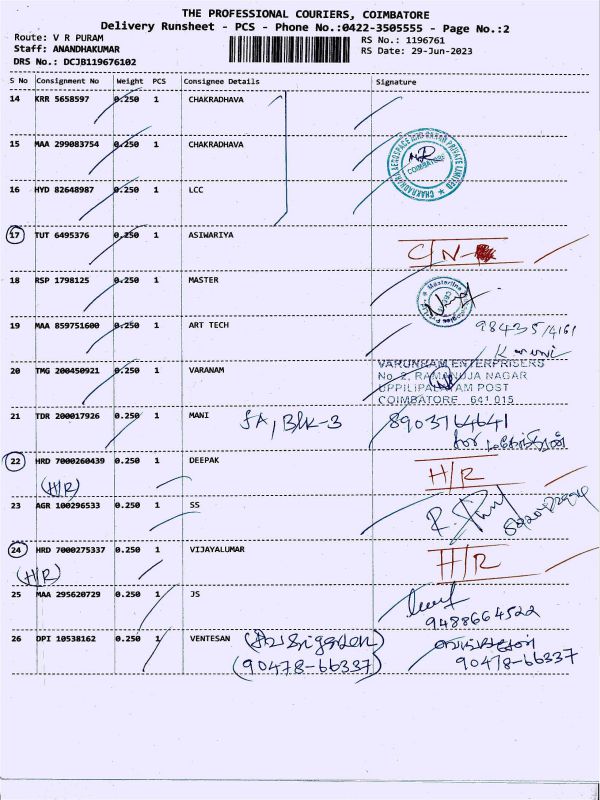 THE PROFESSIONAL COURIERS, COIMBATORE
Delivery Runsheet - PCS - Phone No.:0422-3505555 - Page No.:2
Route: V R PURAM
RS No.: 1196761
Staff: ANANDHAKUMAR
RS Date: 29-Jun-2023
DRS No.: DCJB119676102
S No Consignment No Weight PCS Consignee Details Signature
14 KRR 5658597 0.250 1 CHAKRADHAVA
15 MAA 299083754 0.250 1 CHAKRADHAVA
COIMBATORE
16 HYD 82648987 0.250 1 LCC
17 TUT 6495376 0.250 1 ASIWARIYA
C/N-
18 RSP 1798125 0.250 1 MASTER
19 MAA 859751600 0.250 1 ART TECH
20 TMG 200450921 0.250 1 VARANAM
VARUNRAM ENTERPRISERS
No. 2, RAMANUJA NAGAR
UPPILIPALAYAM POST
COIMBATORE 641 015
21 TDR 200017926 1 MANI SA, Blk-3 8903764641
22 HRD 7000260439 0.250 1 DEEPAK H/R
(H/R)
23 AGR 100296533 0.250 1 SS
24 HRD 7000275337 0.250 1 VIJAYALUMAR H/R
(H/R)
25 MAA 295620729 0.250 1 JS
9488664522
26 DPI 10538162 0.250 1 VENTESAN
(90478-66337) 90478-66337